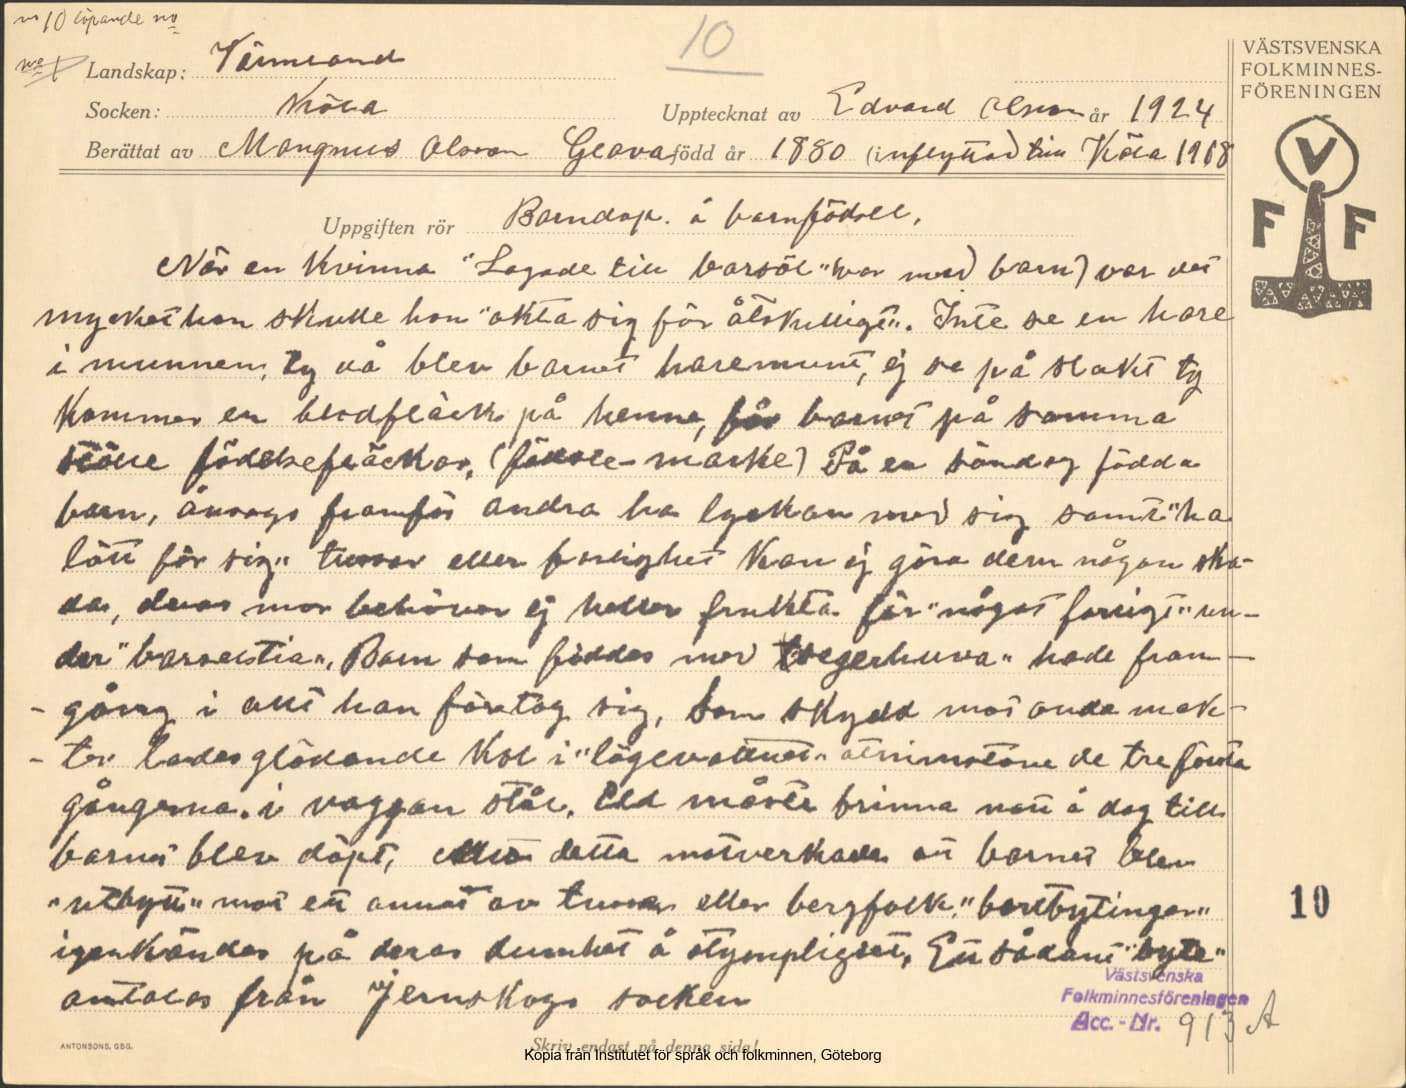 10 löpande no
10
VÄSTSVENSKA
FOLKMINNES-
FÖRENINGEN
Landskap: Värmland
Socken: Köla
Upptecknat av Edvard Olsson år 1924
Berättat av Mangnus Olsson Glava född år 1880 (inflyttad till Köla 1908
V
F F
Uppgiften rör Barndop. å barnfödsel.
När en kvinna "Lagade till barsöl" (var med barn) var det
mycket hon skulle hon "akta sig för åtskilligt". Inte se en hare
i munnen, ty då blev barnet haremunt, ej se på slakt ty
kommer en blodfläck på henne, får barnet på samma
ställe födelsefläckar, (födsle-marke) På en söndag födda
barn, ansags framför andra ha lyckan med sig samt "ha
lätt för sig" tussar eller farlighet kan ej göra dem någon ska-
da, deras mor behöver ej heller frukta för "något farligt" un-
der "barselstia". Barn som föddes med "segerhuva" hade fram-
- gång i allt han företog sig, Som skydd mot onda mak-
- ter lades glödande kol i "lögevattnet" åtminstone de tre första
gångerna. i vaggan stål. Eld måste brinna natt å dag till
barnet blev döpt, detta motverkade att barnet blev
"utbytt" mot ett annat av tussar eller bergfolk. "bortbytingar"
igenkändes på deras dumhet å otymplighet, Ett sådant "byte"
omtalas från Jernskogs socken
10
Västsvenska
Folkminnesföreningen
Acc. - Nr. 913 A
ANTONSONS, GBG.
Skriv endast på denna sida!
Kopia från Institutet för språk och folkminnen, Göteborg